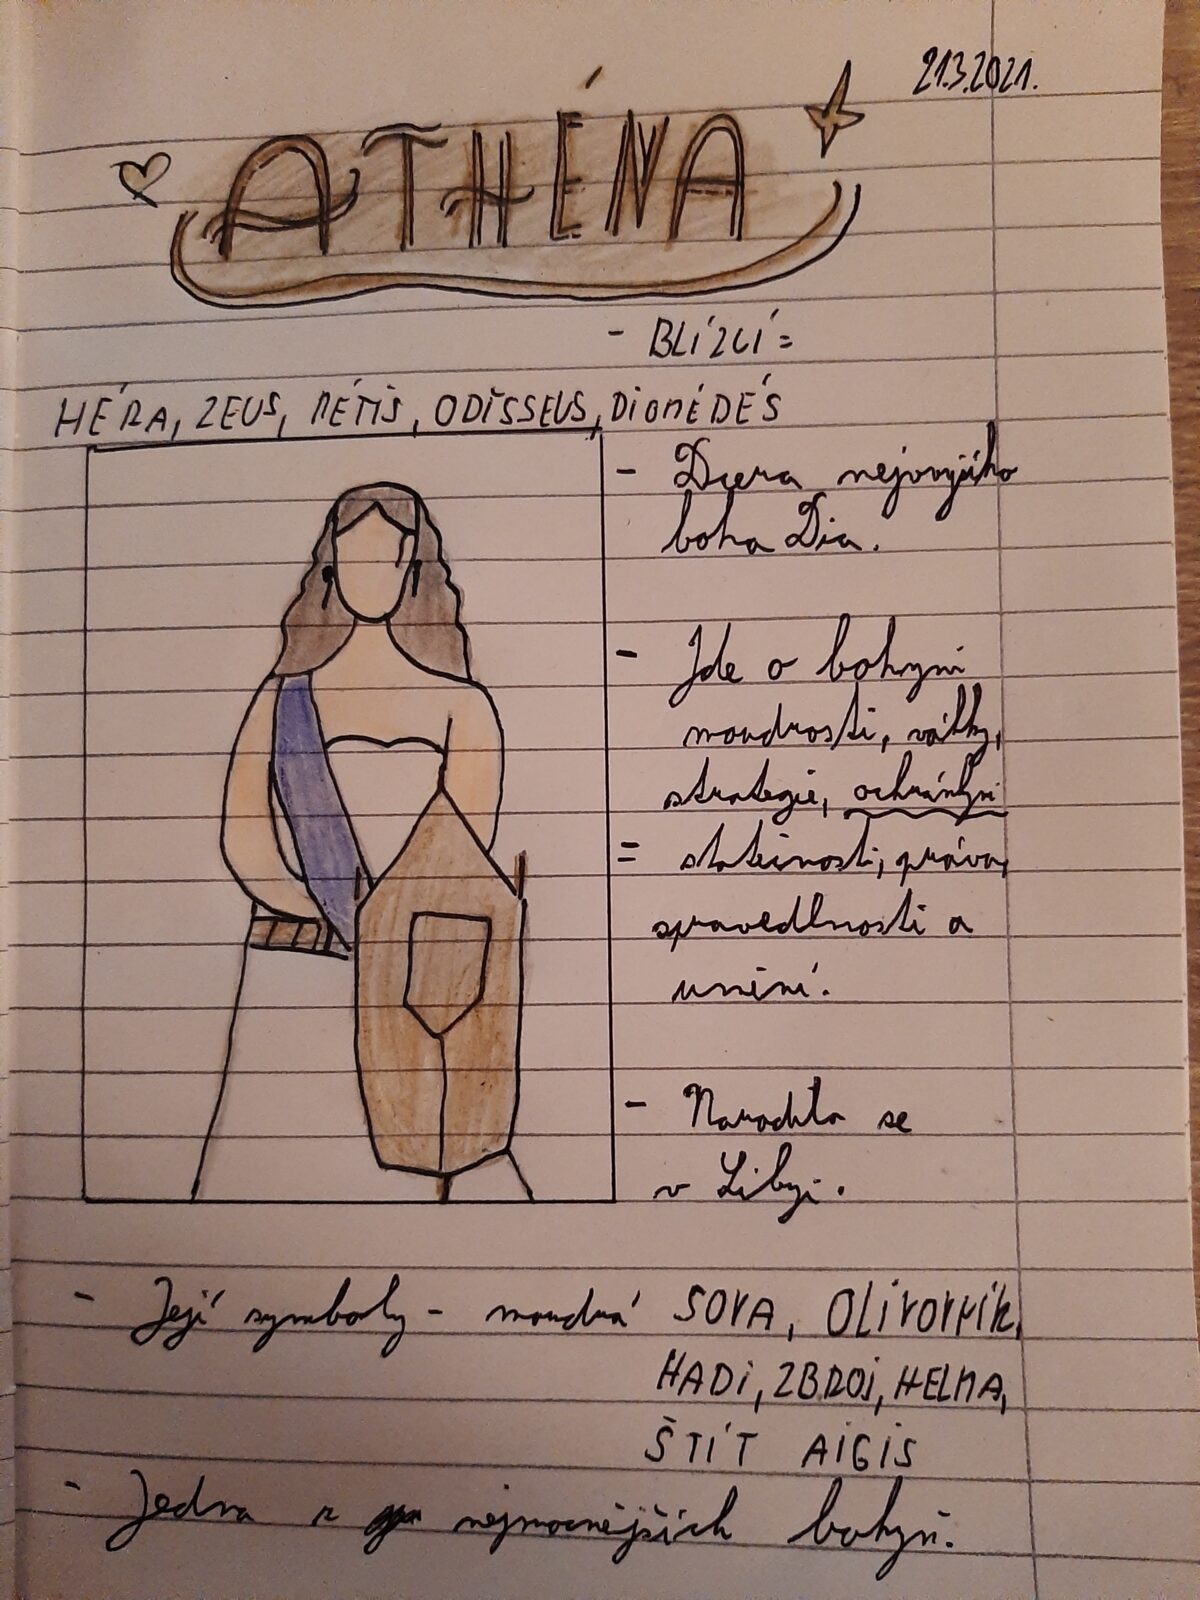 21.3.2021.
ATHÉNA
- BLÍZCÍ =
HÉRA, ZEUS, MÉTIS, ODISSEUS, DIOMÉDÉS
- Dcera nejvyššího
boha Dia.
- Jde o bohyni
moudrosti, války,
strategie, ochránkyni
= statečnosti, práva,
spravedlnosti a
umění.
- Narodila se
v Libyi.
- Její symboly - moudrá SOVA, OLIVOVNÍK,
HADI, ZBROJ, HELMA,
ŠTÍT AIGIS
- Jedna z nejmocnějších bohyň.